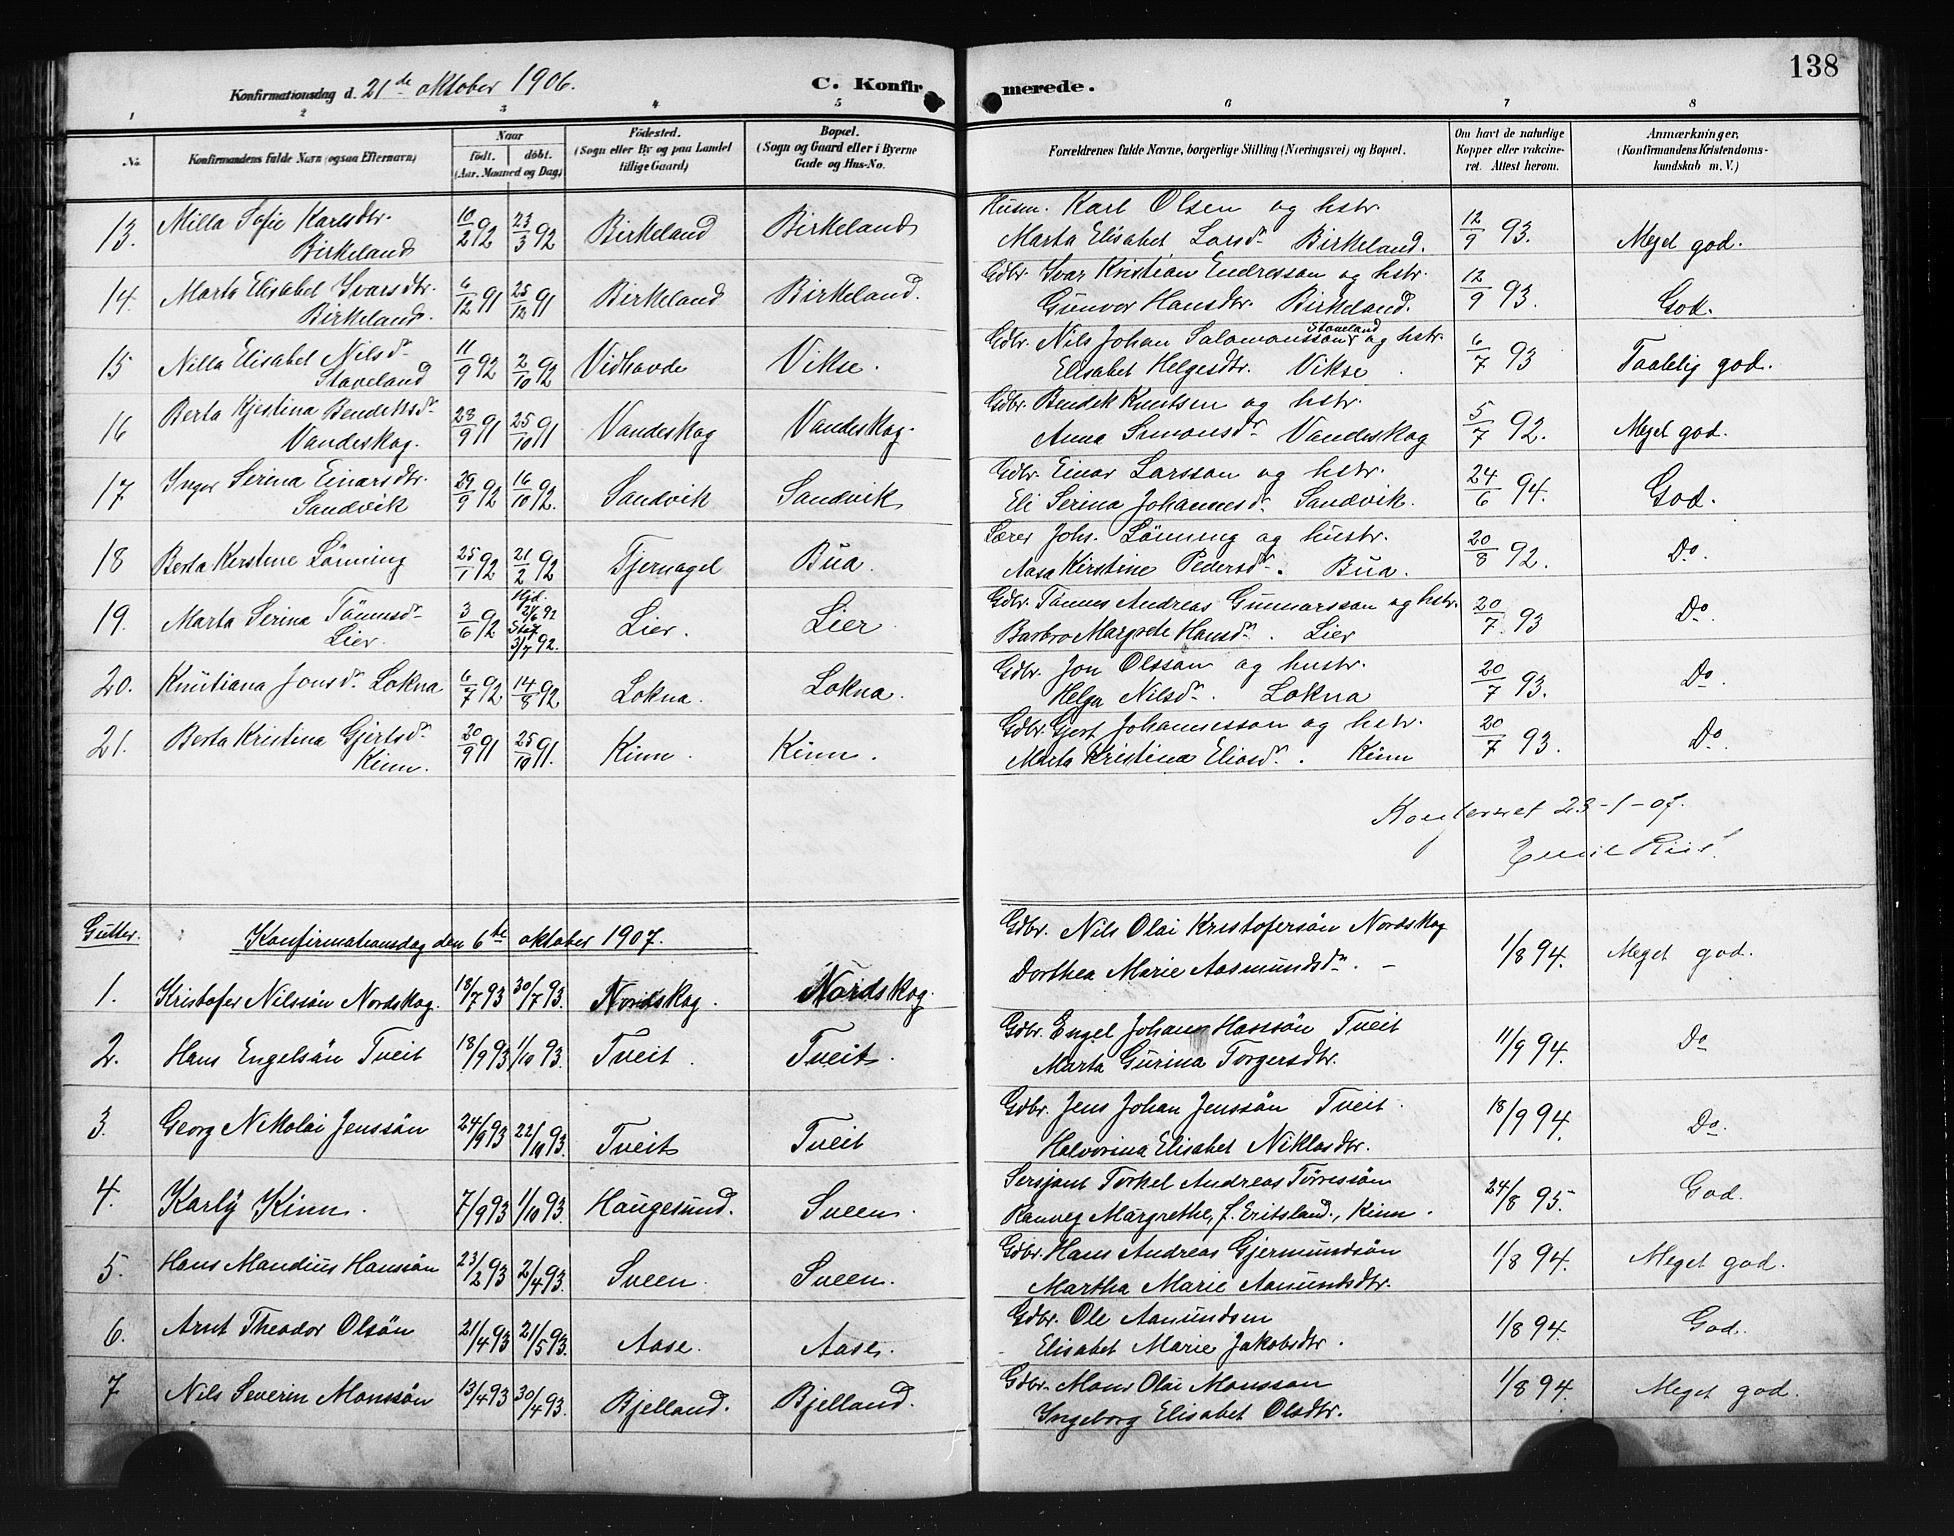 138
Konfirmationsdag d. 21de oktober 1906. C. Konfirmerede.
1 2 3 4 5 6 7 8
No. Konfirmandens fulde Navn (ogsaa Efternavn) Naar født. døbt. (Aar, Maaned og Dag) Fødested. (Sogn eller By og paa Landet tillige Gaard) Bopæl. (Sogn og Gaard eller i Byerne Gade og Hus-No. Forældrenes fulde Navne, borgerlige Stilling (Næringsvei) og Bopæl. Om havt de naturlige Kopper eller vakcineret. Attest herom. Anmærkninger, (Konfirmandens Kristendomskundskab m. V.)
13. Milla Sofie Karlsdtr. Birkeland 10/2 92 23/3 92 Birkeland Birkeland Husm. Karl Olsen og hstr. Marta Elisabet Larsdr Birkeland. 12/9 93. Meget god.
14. Marta Elisabet Ivarsdtr. Birkeland. 6/12 91 25/12 91 Birkeland Birkeland. Gdbr. Ivar Kristian Endresson og hstr. Gunvor Hansdtr. Birkeland. 12/9 93. God.
15 Nilla Elisabet Nilsdr Staveland 11/9 92 2/10 92 Vidhovde Vikse. Gdbr. Nils Johan Salomonsson Staveland og hstr. Elisabet Helgesdtr. Vikse. 6/7 93 Taalelig god.
16 Berta Kjestina Bendeksdr Vandeskog. 28/9 91 25/10 91 Vandeskog Vandeskog. Gdbr. Bendek Knutsen og hstr. Anna Simonsdr Vandeskog 5/7 92. Meget god.
17 Inger Serina Einarsdtr. Sandvik 29/9 92 16/10 92. Sandvik Sandvik Gdbr. Einar Larsson og hstr. Eli Serina Johannesdr Sandvik. 24/6 94. God.
18 Berta Kerstine Lønning 25/1 92 21/2 92 Tjernagel Bua. Lærer Johs. Lønning og hustr. Aasa Kirstine Pedersdr. Bua. 20/8 92. Do.
19. Marta Serina Tønnesdr Lier. 3/6 92 Hjd. 27/6 92 Stfst 3/7 92. Lier. Lier. Gdbr. Tønnes Andreas Gunnarsson og hstr. Barbro Margrete Hansdr. Lier 20/7 93 Do.
20. Knutiana Jonsdr Lokna 6/7 92. 14/8 92 Lokna. Lokna. Gdbr. Jon Olsson og hustr. Helga Nilsdr. Lokna 20/7 93. Do.
21. Berta Kristina Gjertsdr Kinn. 20/9 91 25/10 91. Kinn. Kinn. Gdbr. Gjert Johannesson og hstr. Marta Kristina Eliasdr. Kinn 20/7 93. Do.
Konfereret 23-1-07.
Emil Riis.
Gutter. Konfirmationsdag den 6te oktober 1907.
1. Kristofer Nilssøn Nordskog. 18/7 93 30/7 93. Nordskog. Nordskog. Gdbr. Nils Olai Kristofersøn Nordskog Dorthea Marie Aasmundsdr. – 1/8 94. Meget god.
2. Hans Engelsøn Tveit 18/9 93 1/10 93. Tveit. Tveit. Gdbr. Engel Johan Hanssøn Tveit Marta Gurina Torgersdtr. 11/9 94. Do
3. Georg Nikolai Jenssøn 24/9 93 22/10 93. Tveit Tveit Gdbr. Jens Johan Jenssøn Tveit. Halvorina Elisabet Niklasdtr. 18/9 94. Do.
4. Karly Kinn. 7/9 93 1/10 93. Haugesund. Sveen. Sersjant Torkel Andreas Tørressøn Ranveg Margrethe, f. Eritsland, Kinn. 24/8 95. God.
5. Hans Mandius Hanssøn 23/2 93 2/4 93. Sveen. Sveen. Gdbr. Hans Andreas Gjermundsøn Martha Marie Aamundsdtr. 1/8 94. Meget god.
6. Arnt Theodor Olsøn 21/4 93 21/5 93. Aase. Aase. Gdbr. Ole Aamundsen Elisabet Marie Jakobsdtr. 1/8 94. God.
7 Nils Severin Monssøn 13/4 93 30/4 93. Bjelland. Bjelland. Gdbr. Mons Olai Monsson Ingeborg Elisabet Olsdtr. 1/8 94. Meget god.